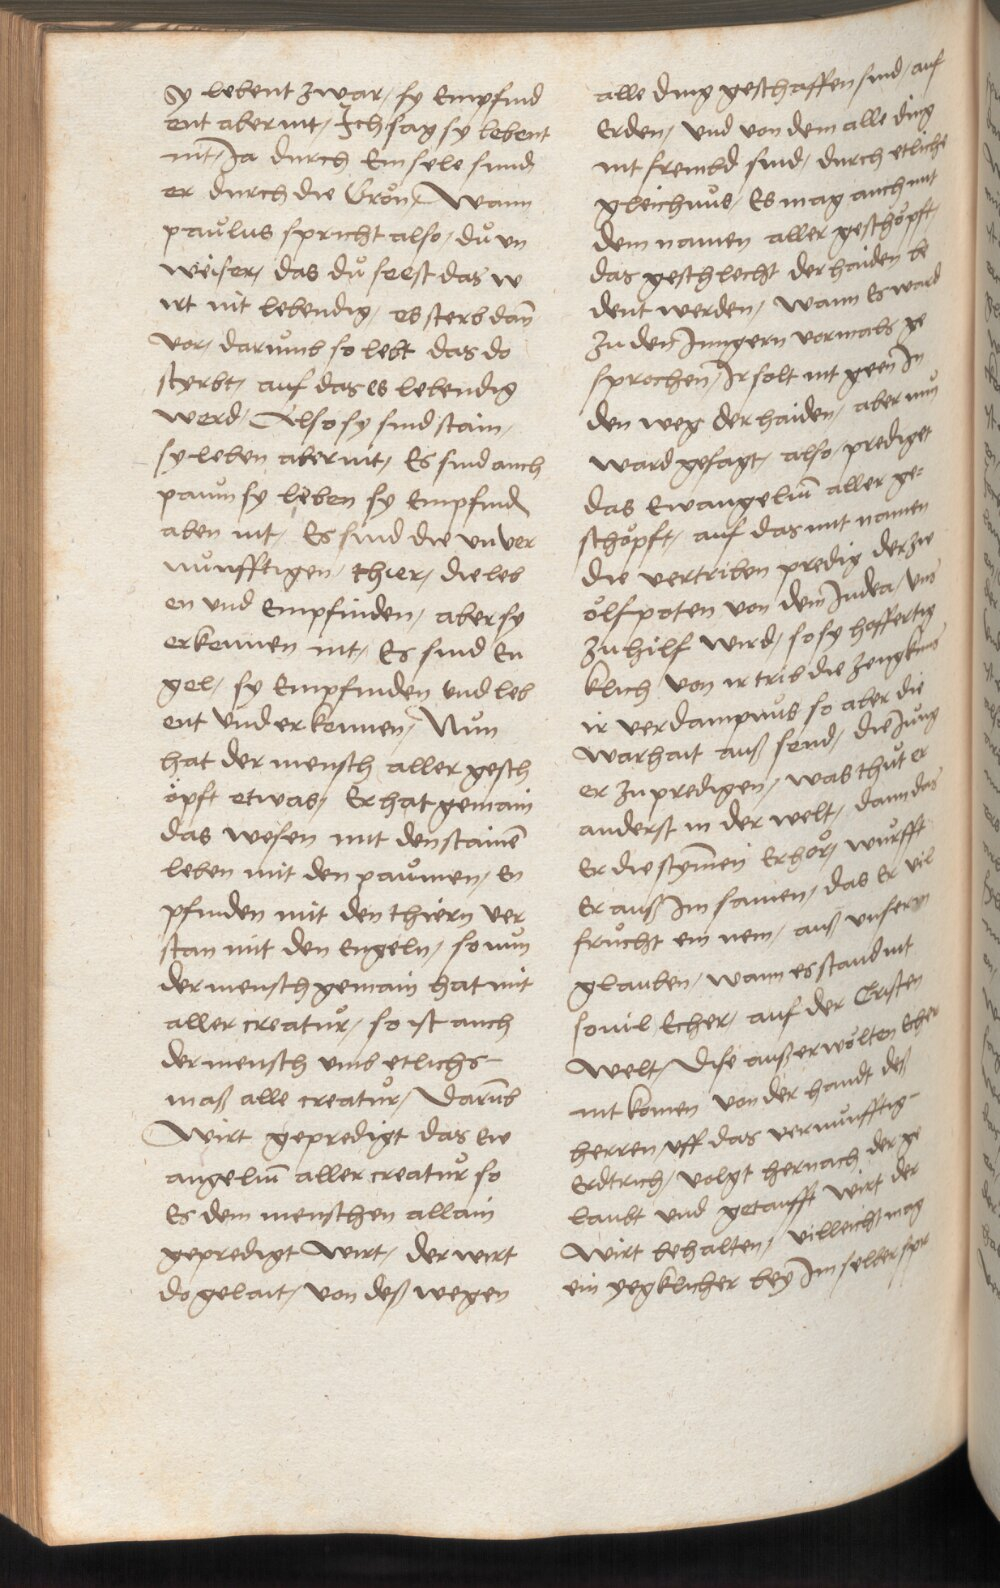 Sy lebent zwar / sy Empfind
ent aber nit / Ich sag sy lebent
nit / Ja durch Ein sele sund
er durch die Grön / Wann
paulus spricht also / dů vn
weiser / das dů seest das w
irt nit lebendig / es sterb dan̄
vor / darumb so lebt das do
styrbt / auf das es lebendig
werd / Also sy sind stain /
sy leben aber nit / Es sind auch
paum sy leben sy Empfinden
aben nit / Es sind die vnver
nunfftigen / thier / die leb
en vnd Empfinden / aber sy
erkennen nit / Es sind En
gel / sy Empfinden vnd leb
ent vnd erkennen / Nun
hat der mensch aller gesch
öpft etwas / Er hat gemain
das wesen mit den stainē
leben mit den paumen / En
pfinden mit den thiern ver
stan mit den Engeln / so nun
der mensch gemain hat mit
aller creatur / so ist auch
der mensch vmb etlichs
maß alle creatur / Darūb
Wirt gepredigt das Ew
angeliū aller creatur so
Es dem menschen allain
gepredigt Wirt / der wirt
do gelait / von deß wegen
alle ding geschaffen sind / auf
Erden / vnd von dem alle ding
nit frembd sind / durch etliche
gleichnus / Es mag auch mit
dem namen aller geschöpft
das geschlecht der haiden be
deut werden / Wann Es ward
zu den Jungern vormals ge
sprochen / Ir solt nit geen In
den weg der haiden / aber nun
ward gesagt / also / prediget
das Ewangeliū aller ge-
schöpft / auf das mit namen
die vertriben predig der zw
ölfpoten von dem Judea / vns
zu hilf wird / so sy hoffertig
klich von ir trib die zeugknus
ir verdampnus so aber die
warhait auß send / die Jung
er zu predigen / was thůt er
anderst in der welt / dann das
Er die stym̄en Erhör / wurfft
Er auß Im samen / das Er vil
frücht ein nem / auß vnserm
glauben / wann es stand nit
souil Echer / auf der Cristen
Welt / Dise außerwölten Echer
nit komen von der handt deß
herren / vff das vernunfftig
Erdtrich / volgt hernach der ge
laubt vnd getaufft wirt der
Wirt behalten / villeicht mag
ein yegklicher bey Im selber spr